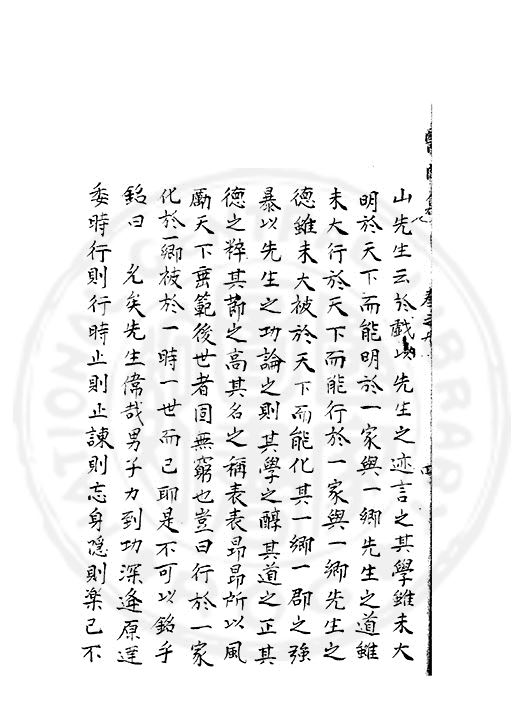 山先生云於戲以先生之迹言之其學雖未大
明於天下而能明於一家與一鄉先生之道雖
未大行於天下而能行於一家與一鄉先生之
德雖未大被於天下而能化其一鄉一郡之強
暴以先生之功論之則其學之醇其道之正其
德之粹其節之高其名之稱表表昂昂所以風
勵天下垂範後世者固無窮也豈曰行於一家
化於一鄉被於一時一世而已耶是不可以銘乎
銘曰 允矣先生偉哉男子力到功深逢原運
委時行則行時止則止諫則忘身隱則樂已不